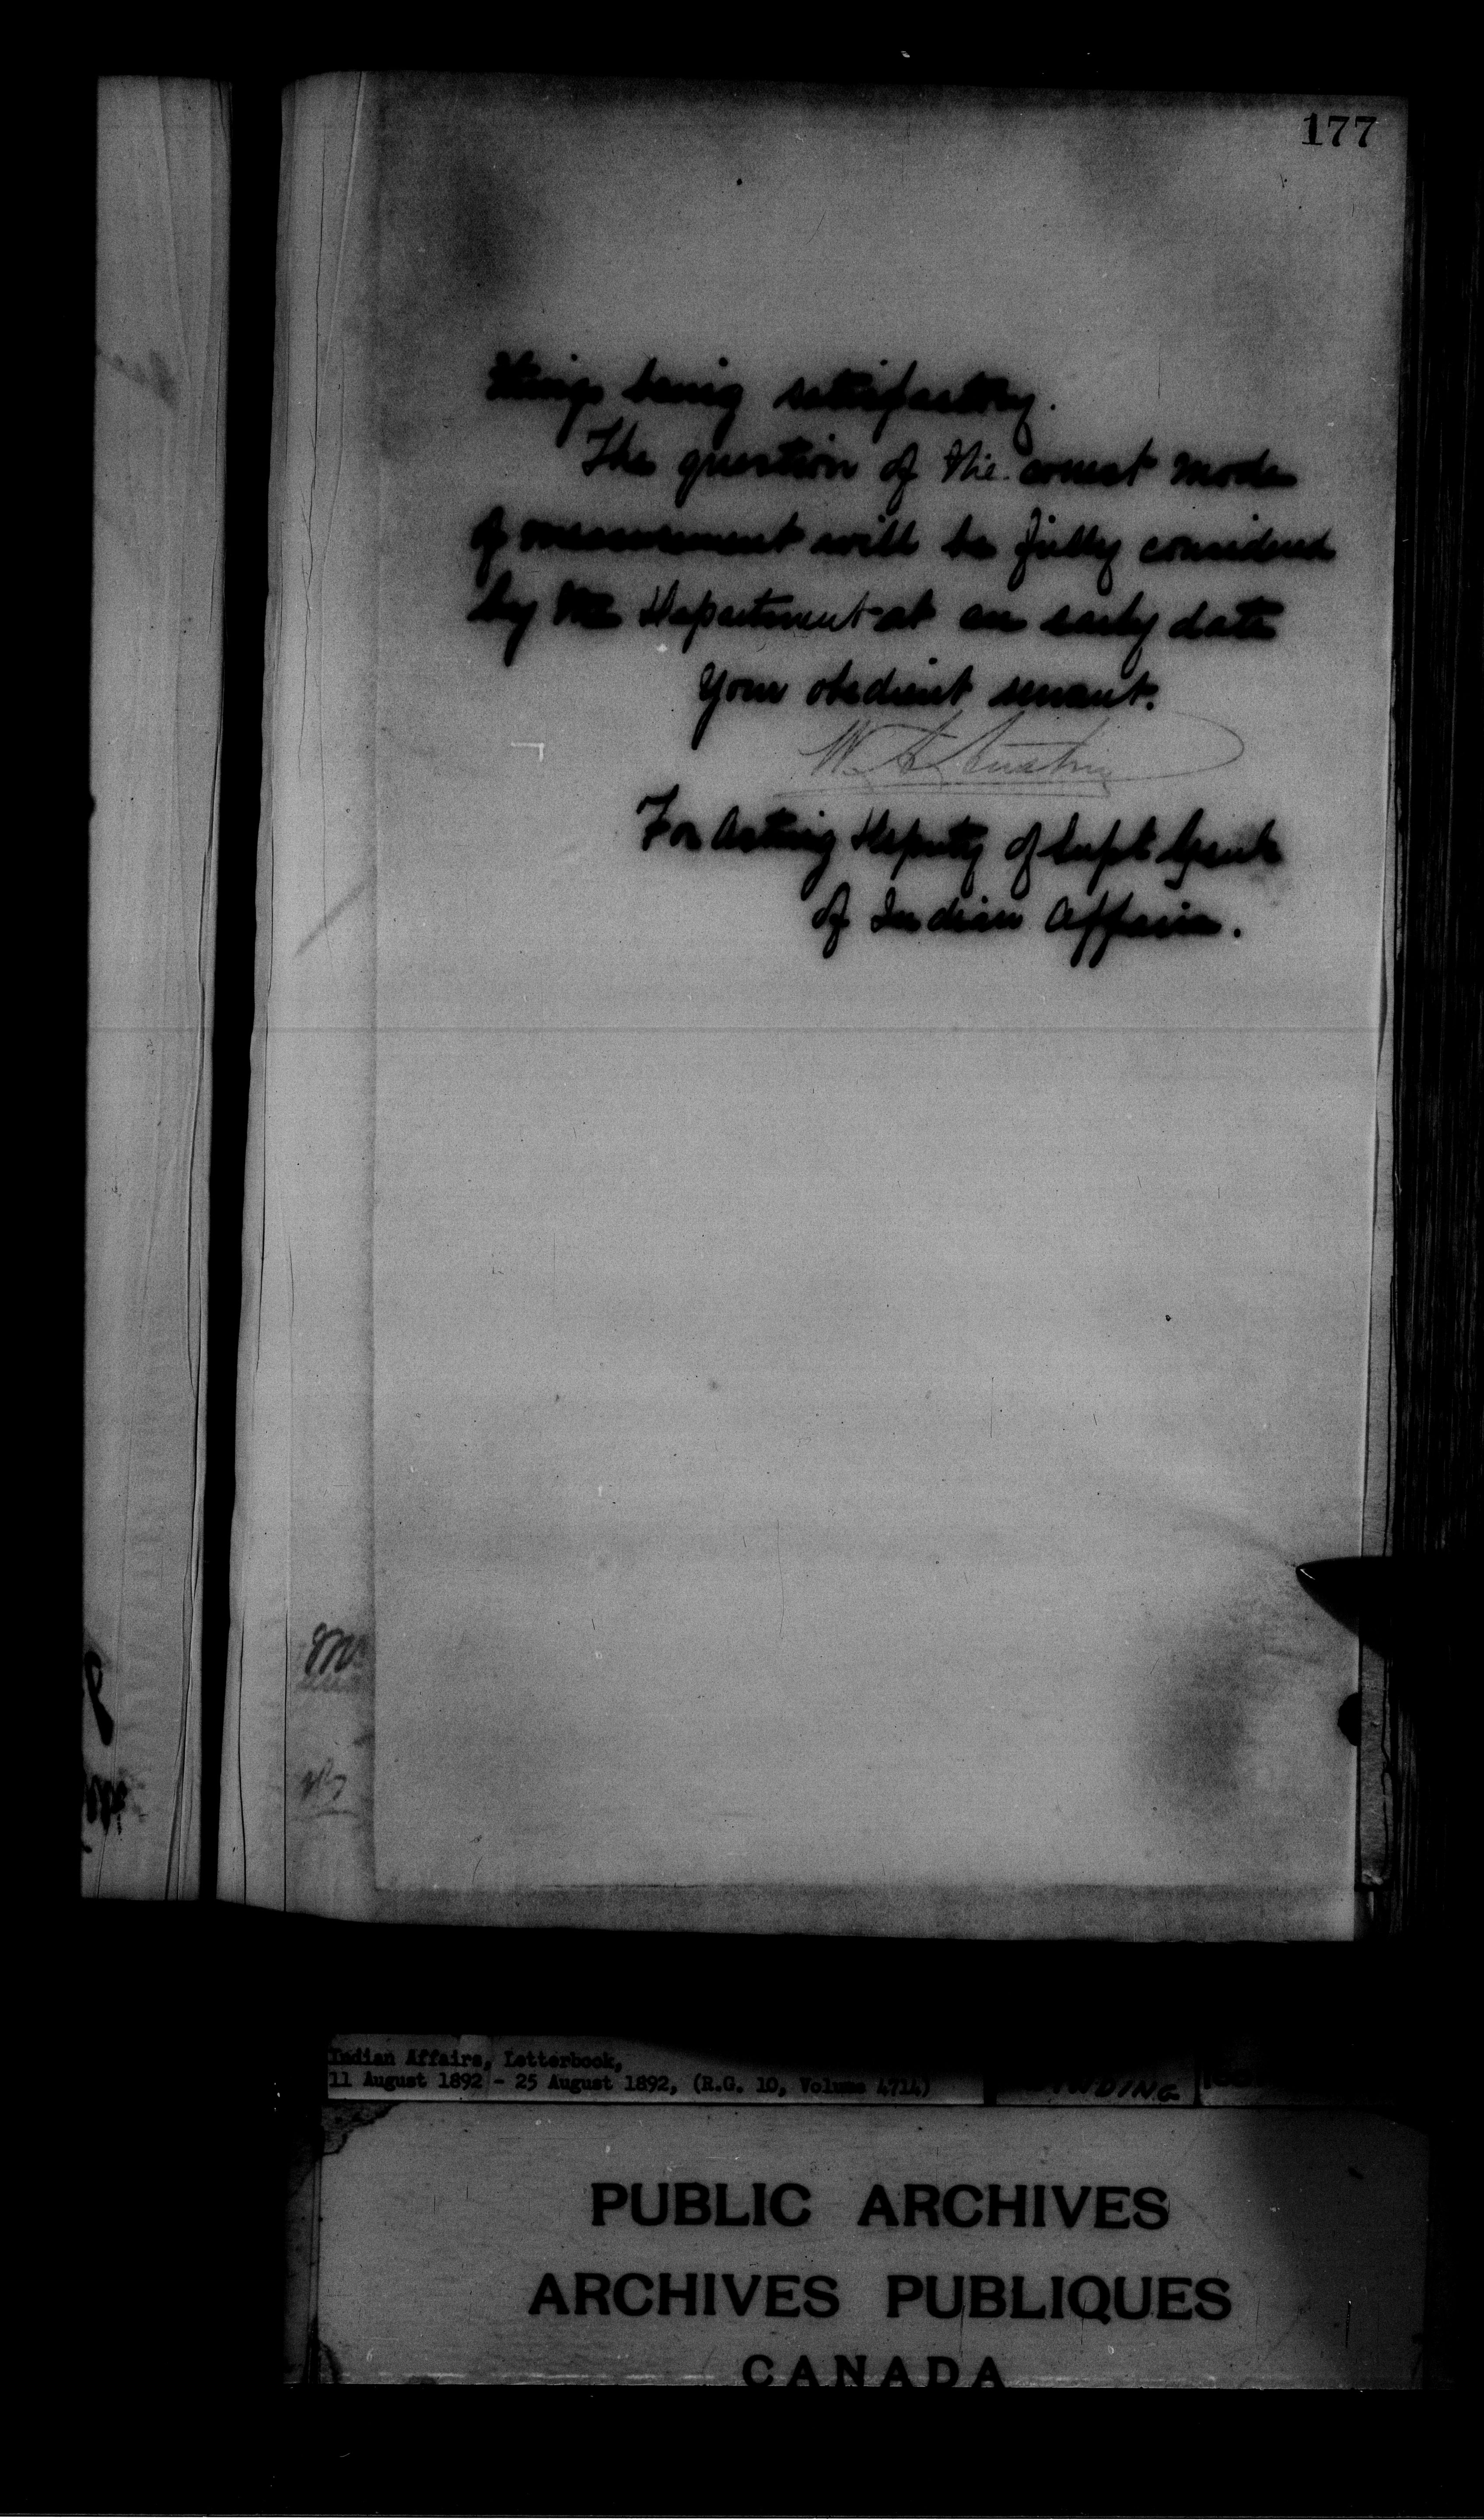 177
things being satisfactory.
The question of the correct mode
of measurement will be fully considered
by the Department at an early date
Your obedient servant.
W. A. Austin
For Acting Deputy of Supt Genl
of Indian Affairs.
Indian Affairs, Letterbook,
11 August 1892 - 25 August 1892, (R.G. 10, Volume 4714)
PUBLIC ARCHIVES
ARCHIVES PUBLIQUES
CANADA